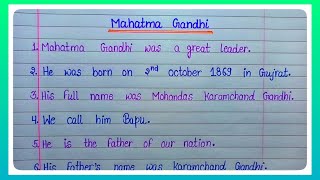 Mahatma Gandhi
1. Mahatma Gandhi was a great leader.
2. He was born on 2nd october 1869 in Gujrat.
3. His full name was Mohandas Karamchand Gandhi.
4. We call him Bapu.
5. He is the father of our nation.
6. His father's name was Karamchand Gandhi.